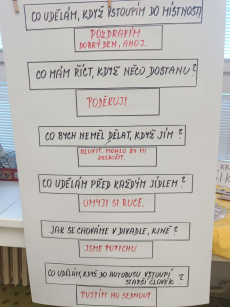 CO UDĚLÁM, KDYŽ VSTOUPÍM DO MÍSTNOSTI
POZDRAVÍM
DOBRÝ DEN, AHOJ.
CO MÁM ŘÍCT, KDYŽ NĚCO DOSTANU?
PODĚKUJI.
CO BYCH NEMĚL DĚLAT, KDYŽ JÍM?
MLUVIT. MOHLO BY MI
ZASKOČIT.
CO UDĚLÁM PŘED KAŽDÝM JÍDLEM?
UMYJI SI RUCE.
JAK SE CHOVÁME V DIVADLE, KINĚ?
JSME POTICHU
CO UDĚLÁM, KDYŽ DO AUTOBUSU VSTOUPÍ
STARŠÍ ČLOVĚK?
PUSTÍM HO SEDNOUT.